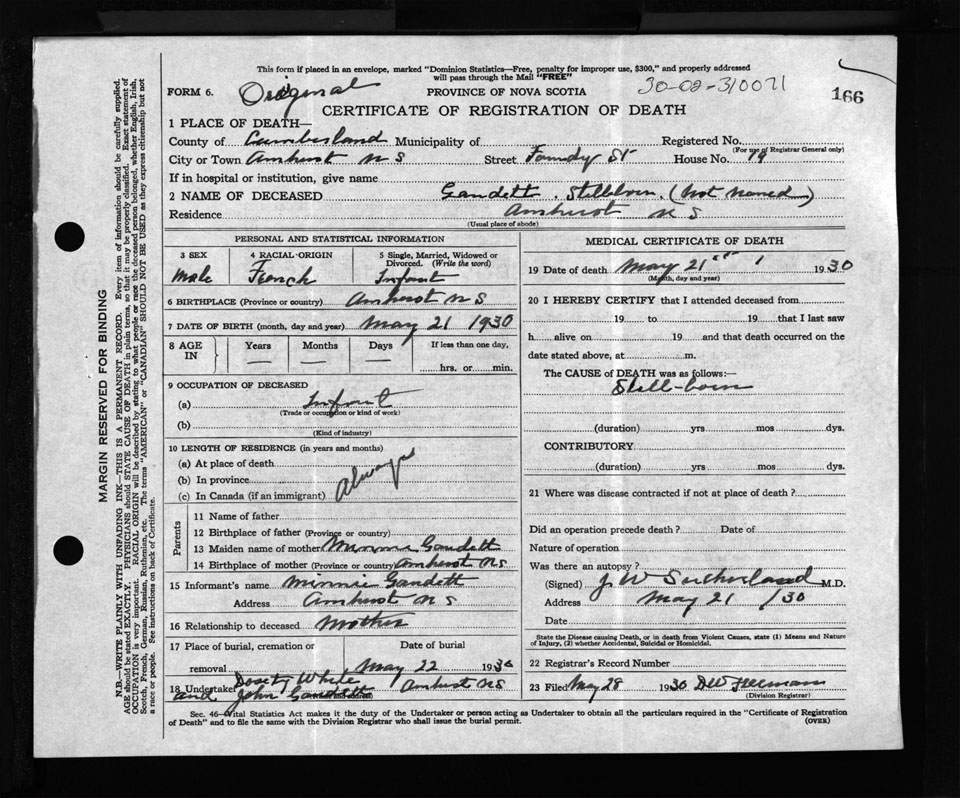 This form if placed in an envelope, marked "Dominion Statistics—Free, penalty for improper use, $300," and properly addressed
will pass through the Mail "FREE"
FORM 6. Original PROVINCE OF NOVA SCOTIA 30-02-310071 166
CERTIFICATE OF REGISTRATION OF DEATH
1 PLACE OF DEATH—
County of Cumberland Municipality of Registered No.
(For use of Registrar General only)
City or Town Amherst N S Street St House No. 19
If in hospital or institution, give name
2 NAME OF DECEASED Gandett . Stillborn . (Not named)
Residence Amherst N S
(Usual place of abode)
PERSONAL AND STATISTICAL INFORMATION
3 SEX 4 RACIAL ORIGIN 5 Single, Married, Widowed or
Divorced. (Write the word)
Male French Infant
6 BIRTHPLACE (Province or country) Amherst N S
7 DATE OF BIRTH (month, day and year) May 21 1930
8 AGE IN Years Months Days If less than one day,
hrs. or min.
9 OCCUPATION OF DECEASED
(a) Infant
(Trade or occupation or kind of work)
(b)
(Kind of industry)
10 LENGTH OF RESIDENCE (in years and months)
(a) At place of death
(b) In province Always
(c) In Canada (if an immigrant)
Parents
11 Name of father
12 Birthplace of father (Province or country)
13 Maiden name of mother Minnie Gandett
14 Birthplace of mother (Province or country) Amherst N S
15 Informant's name Minnie Gandett
Address Amherst N S
16 Relationship to deceased Mother
17 Place of burial, cremation or Date of burial
removal May 22 1930
18 Undertaker White Amherst N S
and John Gandett
MEDICAL CERTIFICATE OF DEATH
19 Date of death May 21st 1930
(Month, day and year)
20 I HEREBY CERTIFY that I attended deceased from
19 to 19 that I last saw
h alive on 19 and that death occurred on the
date stated above, at m.
The CAUSE of DEATH was as follows:—
Still-born
(duration) yrs mos dys.
CONTRIBUTORY
(duration) yrs mos dys.
21 Where was disease contracted if not at place of death?
Did an operation precede death? Date of
Nature of operation
Was there an autopsy?
(Signed) J W Sutherland M.D.
Address May 21 /30
Date
State the Disease causing Death, or in death from Violent Causes, state (1) Means and Nature
of Injury, (2) whether Accidental, Suicidal or Homicidal.
22 Registrar's Record Number
23 Filed May 28 1930
(Division Registrar)
Sec. 46—Vital Statistics Act makes it the duty of the Undertaker or person acting as Undertaker to obtain all the particulars required in the "Certificate of Registration
of Death" and to file the same with the Division Registrar who shall issue the burial permit. (OVER)
MARGIN RESERVED FOR BINDING
N.B.—WRITE PLAINLY WITH UNFADING INK—THIS IS A PERMANENT RECORD. Every item of information should be carefully supplied.
AGE should be stated EXACTLY. PHYSICIANS should STATE CAUSE OF DEATH in plain terms, so that it may be properly classified. Exact statement of
OCCUPATION is very important. RACIAL ORIGIN will be described by stating to what people or race the deceased person belonged, whether English, Irish,
Scotch, French, German, Russian, Ruthenian, etc. The terms "AMERICAN" or "CANADIAN" SHOULD NOT BE USED as they express citizenship but not
a race or people. See instructions on back of Certificate.